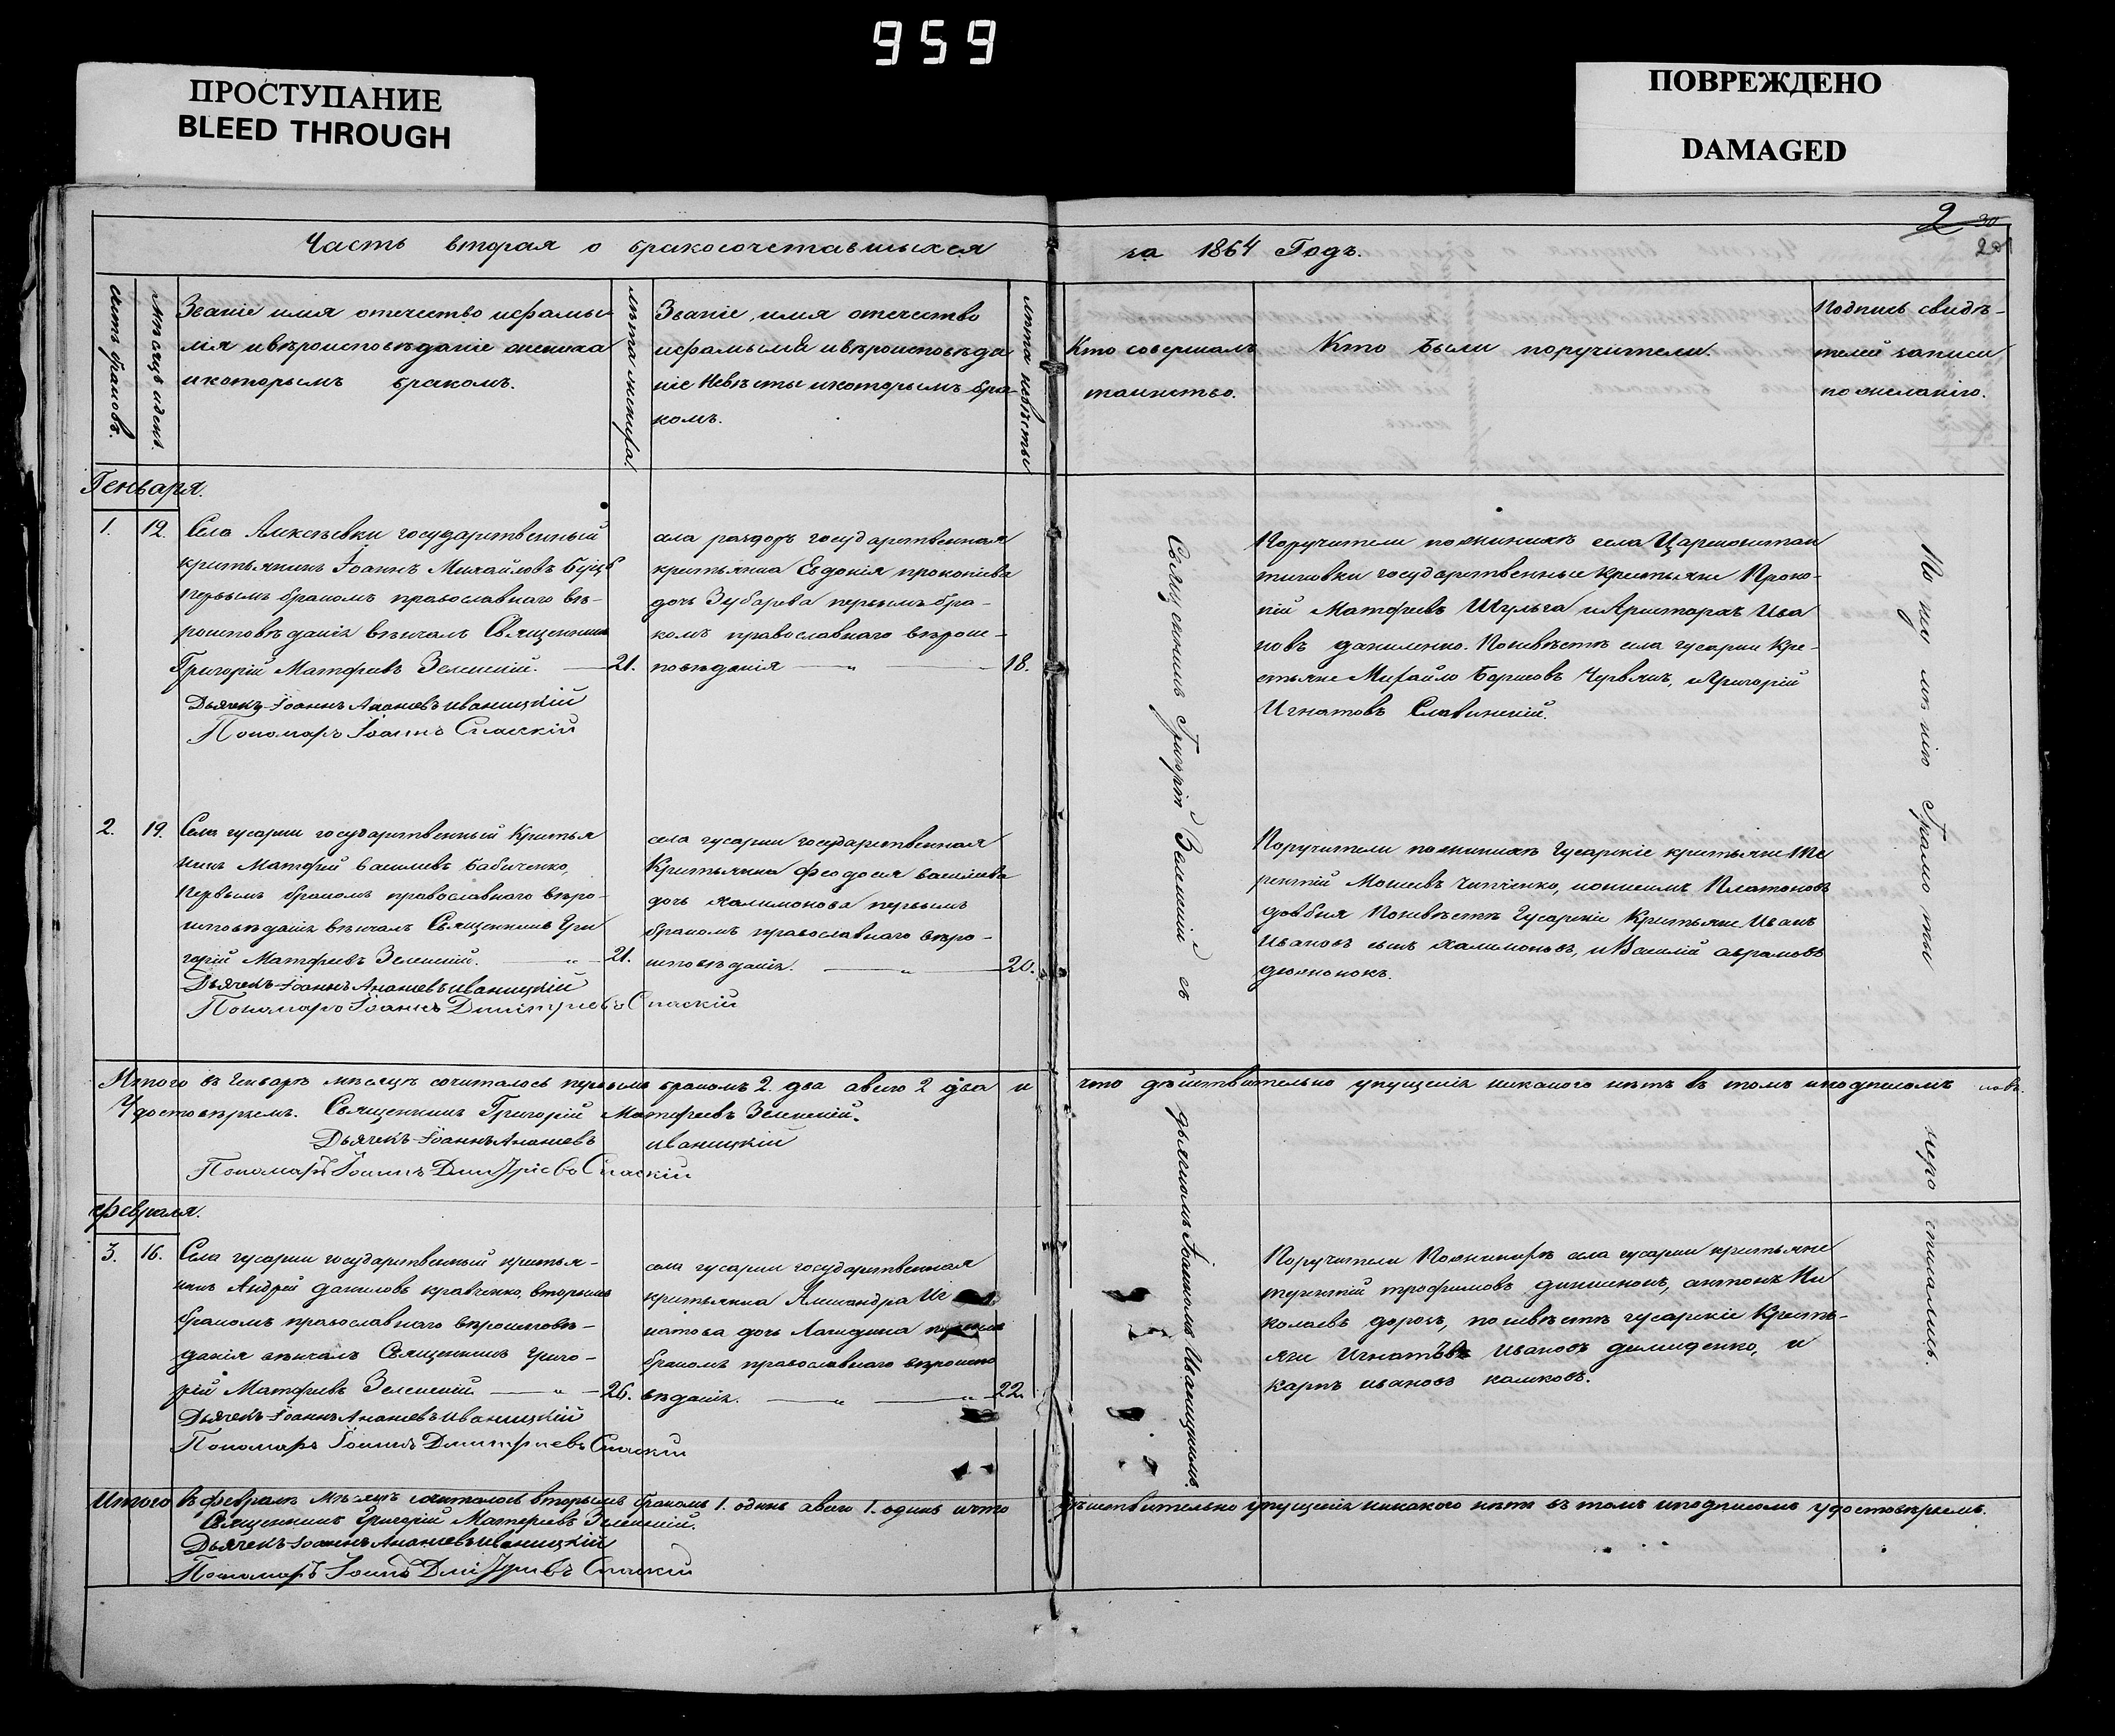 959
ПРОСТУПАНИЕ
BLEED THROUGH
ПОВРЕЖДЕНО
DAMAGED
2 30
20
Часть вторая о бракосочетавшихся
за 1864 Годъ.
счетъ браковъ.
мѣсяцъ и день.
Званіе имя отечество и фамы
лія и вѣроисповѣданіе жениха
и которымъ бракомъ.
лѣта жениха.
Званіе, имя отечество
и фамылія и вѣроисповѣда
ніе Невѣсты и которымъ бра-
комъ.
лѣта невѣсты
Кто совершалъ
таинство.
Кто были поручители.
Подпись свидѣ-
телей записи
по желанію.
Генваря.
1. 12.
Села Алексѣевки государственный
крестьянинъ Іоаннъ Михайловъ
первымъ бракомъ православнаго вѣ-
роисповѣданія вѣнчалъ Священникъ
Григорій Матфеевъ Зеленскій. 21.
Дьячекъ Іоаннъ Ананіевъ Иваницкій
Пономарь Іоаннъ Спаскій
села раздоръ государственная
крестьянка Евдокія прокопіева
дочь Зубарева первымъ бра-
комъ православнаго вѣроис-
повѣданія 18.
Поручители по женихѣ села Царе
государственные крестьяне Проко-
пій Матфеевъ Шульга и Аристархъ Ива
новъ даниленко. По невѣстѣ села гусарки кре-
стьяне Михайло Борисовъ Червякъ, и Григорій
Игнатовъ Славинскій.
2. 19.
Села гусарки государственный Крестья
нинъ Матфей василевъ бабиченко,
первымъ бракомъ православнаго вѣро-
исповѣданія вѣнчалъ Священникъ Гри
горій Матфеевъ Зеленскій. 21.
Дьячекъ Іоаннъ Ананіевъ Иваницкій
Пономарь Іоаннъ Дмитріевъ Спаскій
села гусарки государственная
Крестьянка феодосія василиева
дочь халимонова первымъ
бракомъ православнаго вѣро-
исповѣданія. 20.
Поручители по женихѣ Гусарскіе крестьяне Те
рентій Моисеевъ Платоновъ
довбня По невѣстѣ Гусарскіе Крестьяне Иванъ
Ивановъ сынъ халимоновъ, и Василій аврамовъ
Священникъ Григорій Зеленскій съ
дьячкомъ Іоанномъ Иваницкимъ.
По неумѣнію Грамоты
не росписались.
Итого въ Генварѣ мѣсяцѣ сочиталось первымъ бракомъ 2. два а всего 2 два и
что дѣйствительно упущенія никакого нѣтъ въ томъ и подписомъ
Удостовѣряемъ. Священникъ Григорій Матфеевъ Зеленскій.
Дьячекъ Іоаннъ Ананіевъ Иваницкій
Пономарь Іоаннъ Дмитріевъ Спаскій
февраля.
3. 16.
Села гусарки государственный крестья-
нинъ Андрей даниловъ кравченко, вторымъ
бракомъ православнаго вѣроисповѣ-
данія вѣнчалъ Священникъ Григо-
рій Матфеевъ Зеленскій 26.
Дьячекъ Іоаннъ Ананіевъ Иваницкій
Пономарь Іоаннъ Дмитріевъ Спаскій
села гусарки государственная
крестьянка Александра Иг
натова дочь первымъ
бракомъ православнаго вѣроиспо
вѣданія. 22.
Поручители По женихѣ села гусарки крестьяне
терентій трофимовъ антонъ Ни
колаевъ дорохъ, по невѣстѣ гусарскіе Кресть-
яни Игнатъ Ивановъ демиденко, и
карпъ ивановъ
Итого въ февралѣ мѣсяцѣ сочиталось вторымъ бракомъ 1. одинъ а всего 1. одинъ и что
дѣйствительно упущенія никакого нѣтъ въ томъ и подписомъ удостовѣряемъ.
Священникъ Григорій Матфеевъ Зеленскій.
Дьячекъ Іоаннъ Ананіевъ Иваницкій
Пономарь Іоаннъ Дмитріевъ Спаскій